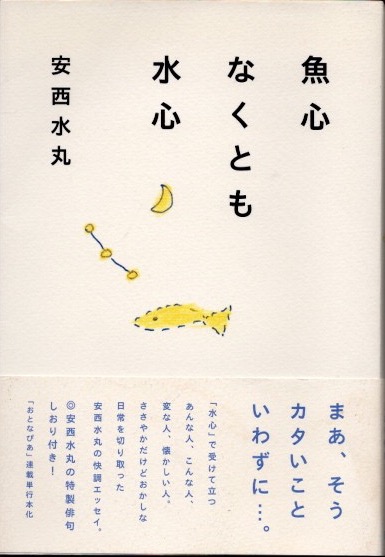 魚心
なくとも
水心
安西水丸
まあ、そう
カタいこと
いわずに…。
「水心」で受けて立つ
あんな人、こんな人、
変な人、懐かしい人。
ささやかだけどおかしな
日常を切り取った
安西水丸の快調エッセイ。
◎安西水丸の特製俳句
しおり付き！
「おとなぴあ」連載単行本化